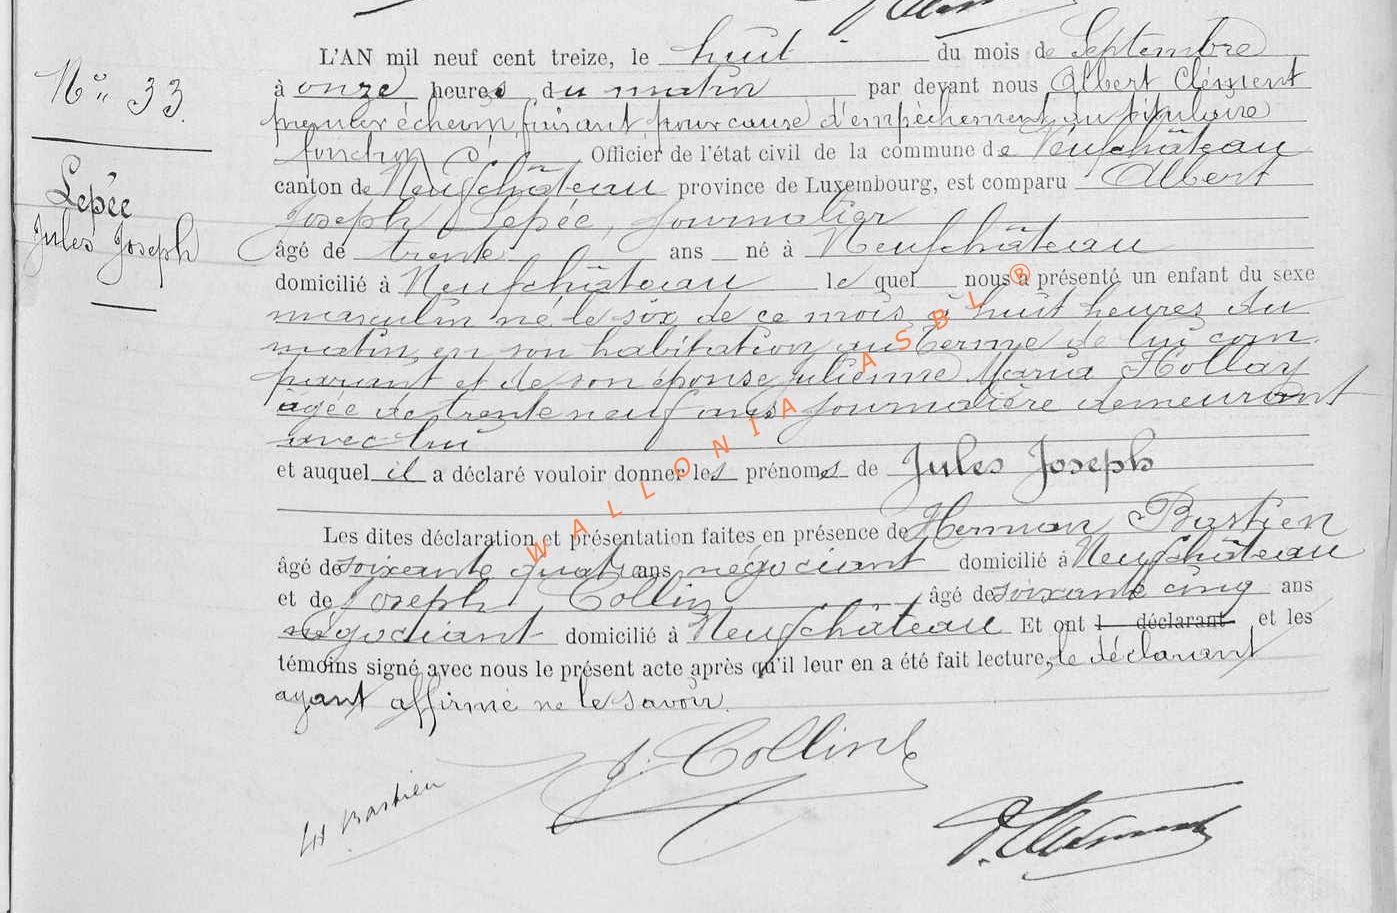 Nº 33.
Lepée
Jules Joseph
L'AN mil neuf cent treize, le huit du mois de Septembre
à onze heures du matin par devant nous Albert Clément
premier échevin, faisant, pour cause d'empêchement du titulaire
fonction d' Officier de l'état civil de la commune de Neufchâteau
canton de Neufchâteau province de Luxembourg, est comparu Albert
Joseph Lepée, journalier
âgé de trente ans né à Neufchâteau
domicilié à Neufchâteau lequel nous a présenté un enfant du sexe
masculin né le six de ce mois à huit heures du
matin, en son habitation au Terme de lui com
parant et de son épouse Julienne Maria Hollay
âgée de trente neuf ans journalière demeurant
avec lui
et auquel il a déclaré vouloir donner les prénoms de Jules Joseph
Les dites déclaration et présentation faites en présence de Herman Bastien
âgé de soixante quatre ans négociant domicilié à Neufchâteau
et de Joseph Collin, âgé de soixante cinq ans
négociant domicilié à Neufchâteau Et ont l déclarant et les
témoins signé avec nous le présent acte après qu'il leur en a été fait lecture, le déclarant
ayant affirmé ne le savoir.
J. Collin
Bastien
WALLONIA ASBL ®